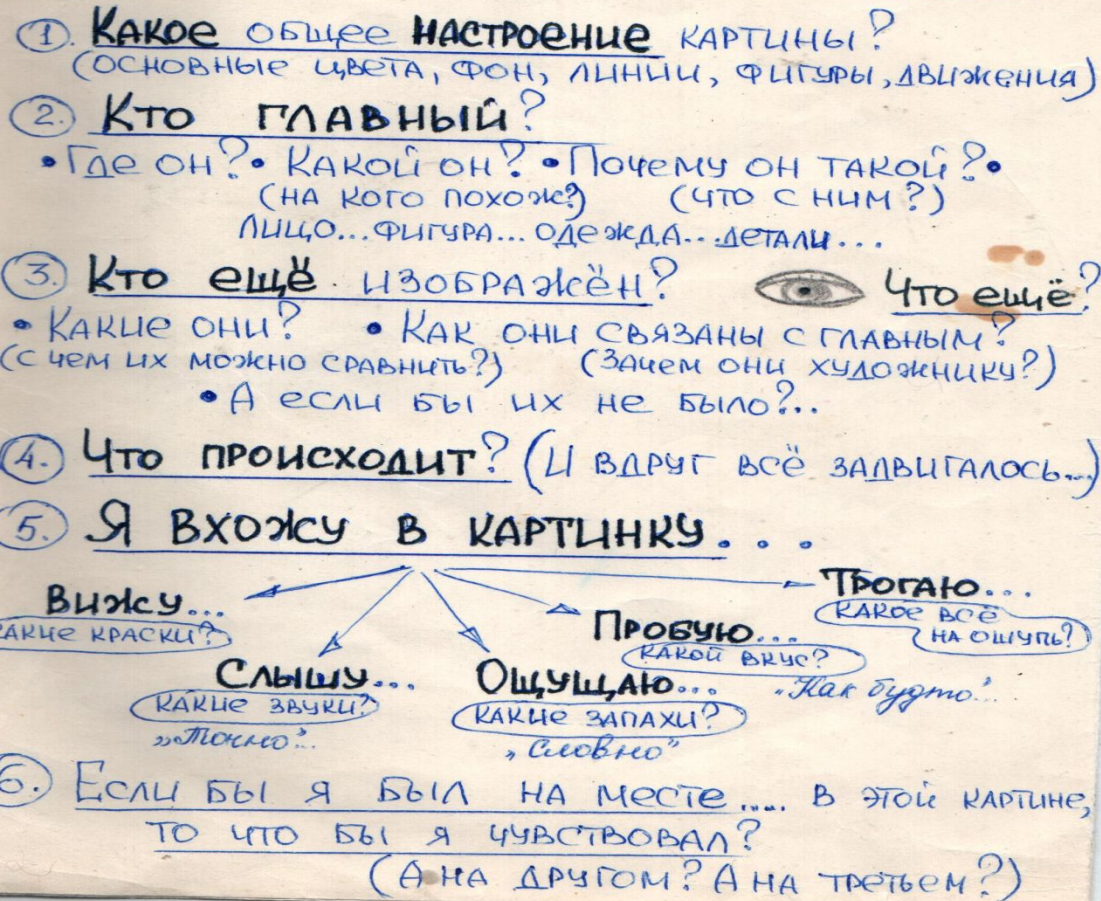 1. Какое общее настроение картины?
(основные цвета, фон, линии, фигуры, движения)
2. Кто главный?
• Где он? • Какой он? • Почему он такой? •
(на кого похож?) (что с ним?)
лицо... фигура... одежда... детали...
3. Кто ещё изображён? Что ещё?
• Какие они? • Как они связаны с главным?
(с чем их можно сравнить?) (Зачем они художнику?)
• А если бы их не было?..
4. Что происходит? (И вдруг всё задвигалось...)
5. Я вхожу в картинку...
Вижу... Трогаю...
какие краски? какое всё
Пробую... на ощупь?
какой вкус?
Слышу... Ощущаю... „Как будто"...
какие звуки? какие запахи?
„Точно"... „Словно"
6. Если бы я был на месте .... в этой картине,
то что бы я чувствовал?
(А на другом? А на третьем?)